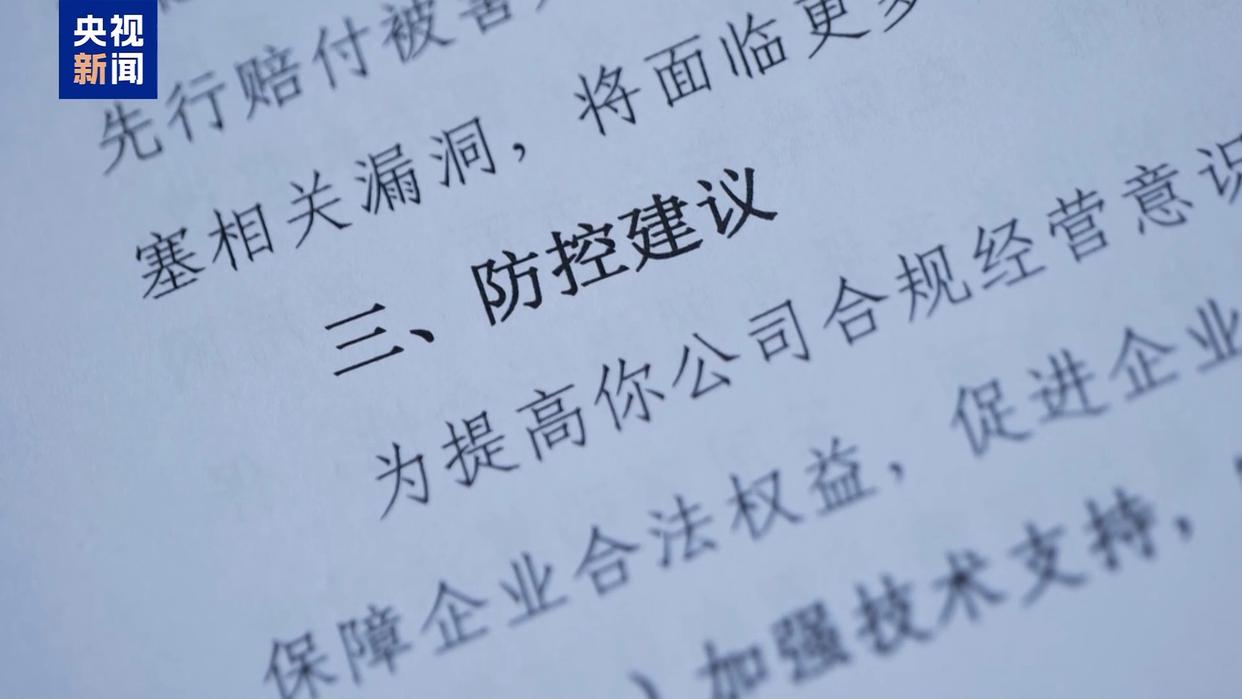 央视
新闻
先行赔付被害
塞相关漏洞，将面临更多
三、防控建议
为提高你公司合规经营意识
保障企业合法权益，促进企业
）加强技术支持，